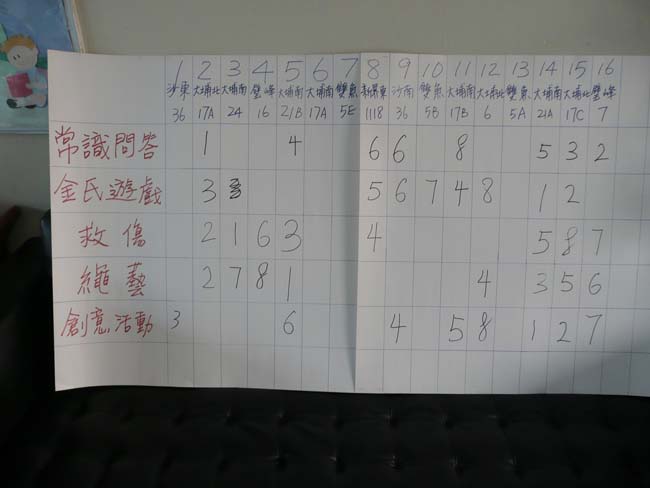 1 2 3 4 5 6 7 8 9 10 11 12 13 14 15 16
沙東 大埔北 大埔南 璧峰 大埔南 大埔南 雙魚 東 沙南 雙魚 大埔南 大埔北 雙魚 大埔南 大埔北 璧峰
36 17A 24 16 21B 17A 5E 1118 36 5B 17B 6 5A 21A 17C 7
常識問答 1 4 6 6 8 5 3 2
金氏遊戲 3 5 6 7 4 8 1 2
救傷 2 1 6 3 4 5 8 7
繩藝 2 7 8 1 4 3 5 6
創意活動 3 6 4 5 8 1 2 7